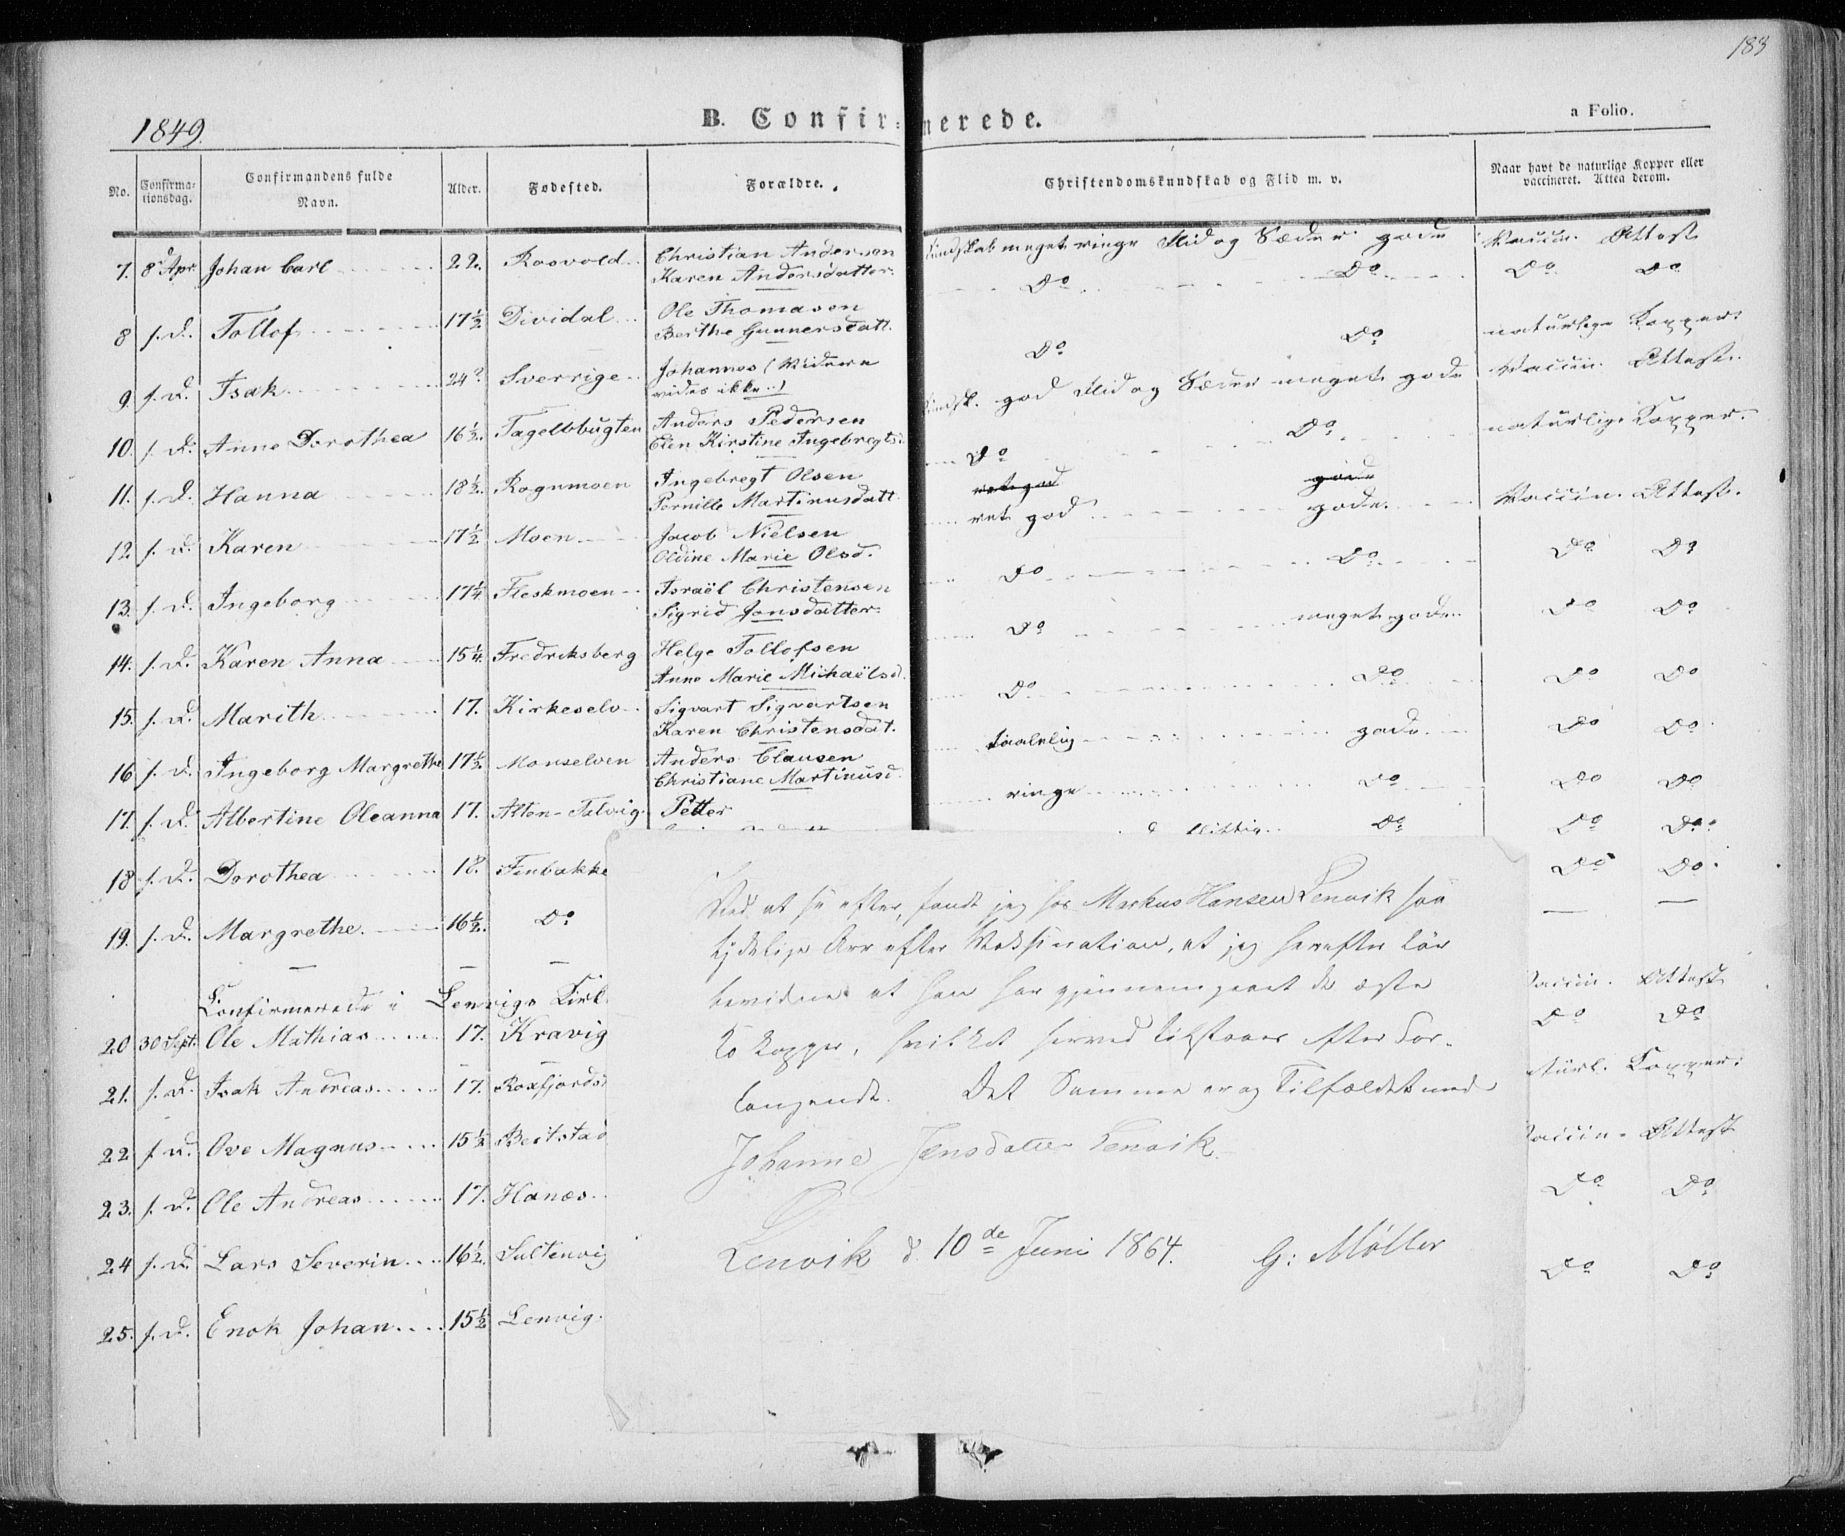 183
1849.
B. Confirmerede.
a Folio.
No. Confirmationsdag. Confirmandens fulde Navn. Alder. Fødested. Forældre. Christendomskundskab og Flid m. v. Naar havt de naturlige Kopper eller vaccineret. Attea derom.
7. 8de Apr. Johan Carl 22. Rosvold Christian Andersen Kundskab meget ringe Flid og Sæder gode Vaccin. Attest
Karen Andersdatter
8 s. D. Tollof 17½ Dividal Ole Thomasen Do Do Do Do
Berthe Gunnersdatt.
9. s. D. Isak 24? Sverrige Johannes (Videre Do Do naturlige Kopper.
vides ikke)
10. s. D. Anne Dorothea 16½. Tagelbbugten Anders Pedersen Kundsk. god Flid og Sæder meget gode Vaccin. Attest.
Elen Kirstine Ingebregtsd.
11. s. D. Hanna 18½. Rognmoen Ingebregt Olsen Do Do naturlige Kopper.
Pernille Martinusdatt.
ret god gode
12. s. D. Karen 17½ Moen Jacob Nielsen ret god gode. Vaccin. Attest.
Oldine Marie Olsd.
13. s. D. Ingeborg 17¼ Fleskmoen Israël Christensen Do Do Do Do
Sigrid Jonsdatter.
14. s. D. Karen Anna 15¼ Fredriksberg Helge Tollofsen Do meget gode. Do Do
Anne Marie Michaëlsd.
15. s. D. Marith 17. Kirkeselv Sigvart Sigvartsen Do Do Do Do
Karen Christensdat.
16 s. D. Ingeborg Margrethe 17½. Monselven Anders Clausen taalelig gode. Do Do
Christiane Martinusd.
17. s. D. Albertine Oleanna 17. Alten-Talvig. Petter ringe Do Do Do
18 s. D. Dorothea 18. Finbakke flittig Do Do Do
19. s. D. Margrethe. 16½. Do Do Do
Confirmerede i Lenvigs Kirk
20 30 Sept. Ole Mathias 17. Kravig Vaccin. Attest
21. s. D. Isak Andreas 17. Roxfjords Do Do
22 s. D. Ove Magnus 15½ Beitstad naturl. Kopper.
23. s. D. Ole Andreas 17. Hanæs Vaccin. Attest
24 s. D. Lars Severin 16½. Sultenvig Do Do
25. s. D. Enok Johan 15½ Lenvig. Do Do
Ved at se efter, fandt jeg hos Markus Hansen Lenvik saa
tydelige Arr efter Vaksination, at jeg herefter tør
bevidne at han har gjennemgaaet de ægte
Kokopper, hvilket herved tilstaaes efter For-
langende. Det Samme er og Tilfældet med
Johanne Jensdatter Lenvik.
Lenvik d. 10de Juni 1864. G: Møller